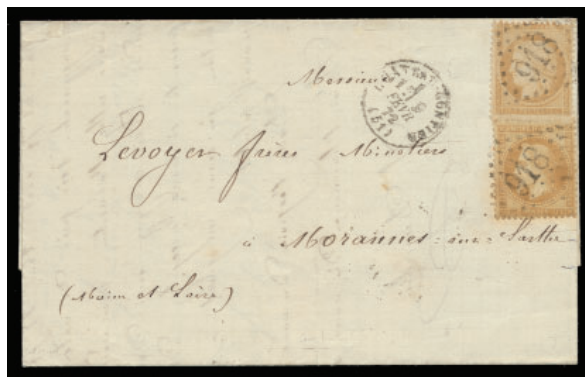 Monsieur
Levoyer frères Minotiers
à Morannes-sur-Sarthe
(Maine et Loire)
FEVR
72
(51)
918
918